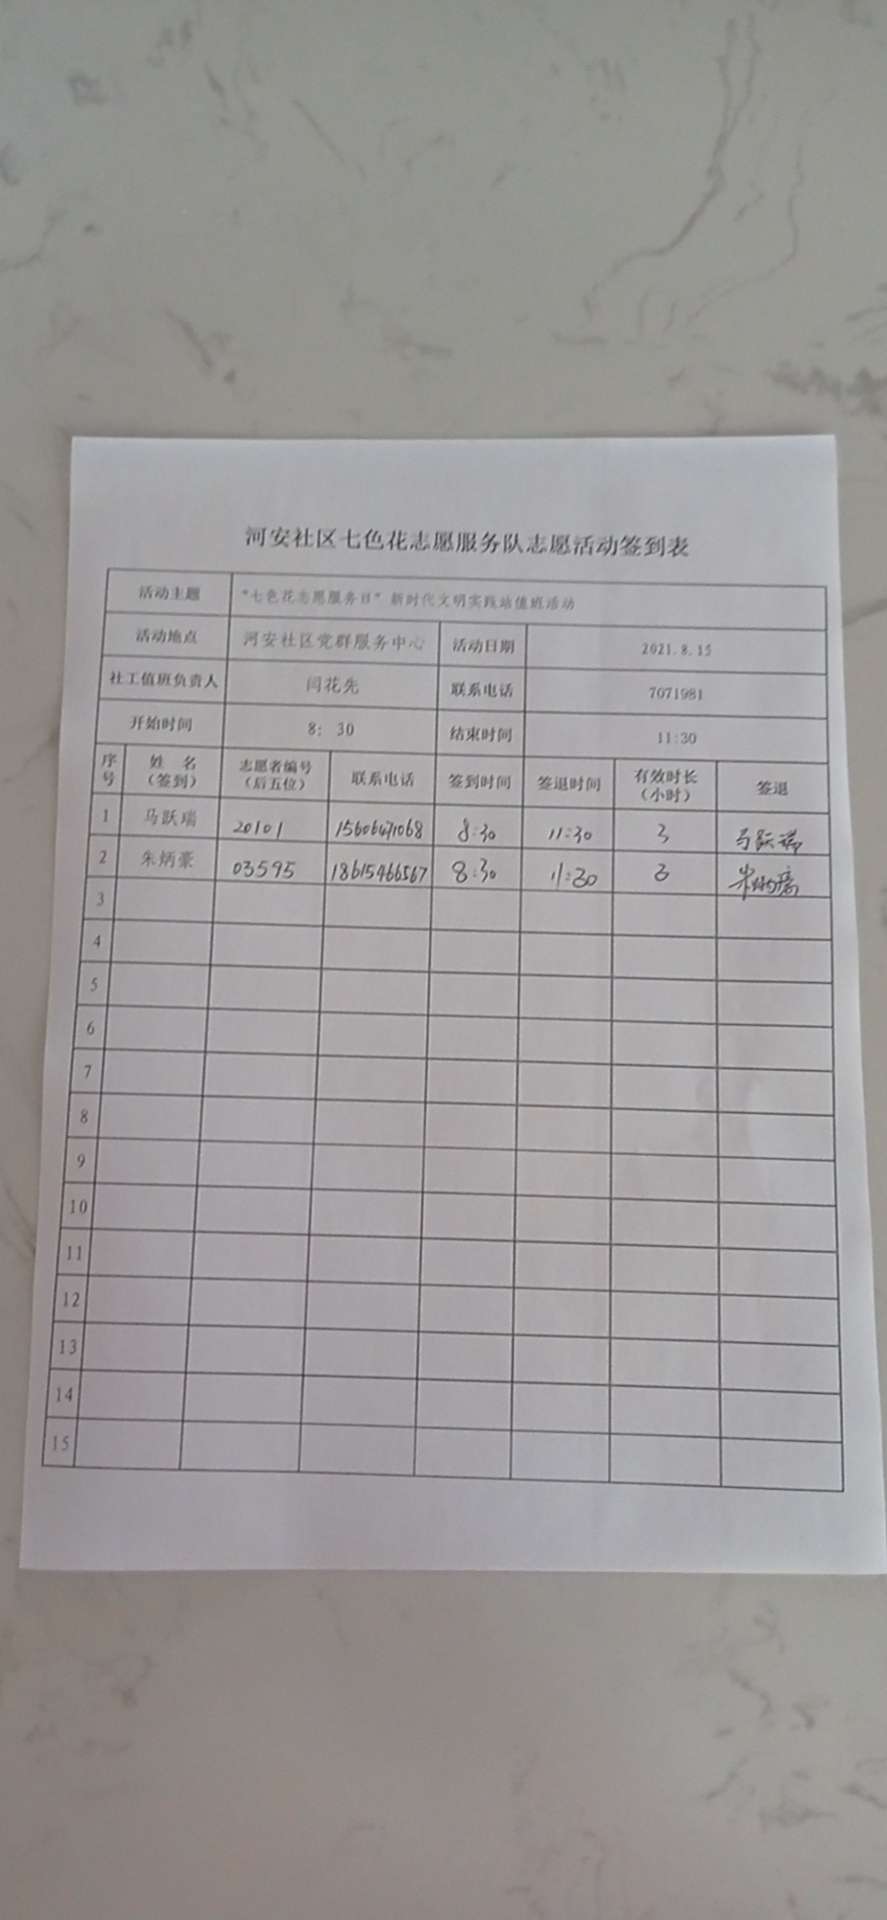 河安社区七色花志愿服务队志愿活动签到表
活动主题 "七色花志愿服务日"新时代文明实践站值班活动
活动地点 河安社区党群服务中心 活动日期 2021.8.15
社工值班负责人 闫花先 联系电话 7071981
开始时间 8：30 结束时间 11:30
序号 姓 名（签到） 志愿者编号（后五位） 联系电话 签到时间 签退时间 有效时长（小时） 签退
1 马跃瑞 20101 8:30 11:30 3 马跃瑞
2 朱炳豪 03595 18615466567 8:30 11:30 3 朱炳豪
3
4
5
6
7
8
9
10
11
12
13
14
15